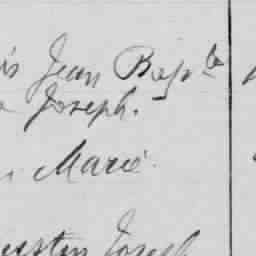 is Jean Bapte
Joseph.
Marie
Joseph